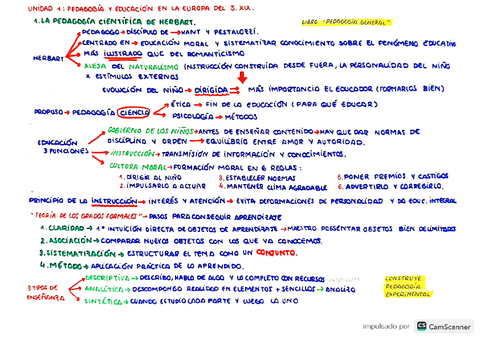 UNIDAD 1: PEDAGOGÍA Y EDUCACIÓN EN LA EUROPA DEL S. XIX.
1. LA PEDAGOGÍA CIENTÍFICA DE HERBART.
LIBRO "PEDAGOGÍA GENERAL"
PEDAGOGO → DISCÍPULO DE → KANT Y PESTALOZZI.
CENTRADO EN → EDUCACIÓN MORAL Y SISTEMATIZAR CONOCIMIENTO SOBRE EL FENÓMENO EDUCATIVO
HERBART
MÁS ILUSTRADO QUE DEL ROMANTICISMO
ALEJA DEL NATURALISMO (INSTRUCCIÓN CONSTRUIDA DESDE FUERA, LA PERSONALIDAD DEL NIÑO
X ESTÍMULOS EXTERNOS
EVOLUCIÓN DEL NIÑO → DIRIGIDA → MÁS IMPORTANCIA EL EDUCADOR (FORMARLOS BIEN)
ÉTICA → FIN DE LA EDUCACIÓN (PARA QUÉ EDUCAR)
PROPUSO → PEDAGOGÍA CIENCIA
PSICOLOGÍA → MÉTODOS
GOBIERNO DE LOS NIÑOS → ANTES DE ENSEÑAR CONTENIDO → HAY QUE DAR NORMAS DE
DISCIPLINA Y ORDEN → EQUILIBRIO ENTRE AMOR Y AUTORIDAD.
EDUCACIÓN
3 FUNCIONES
INSTRUCCIÓN → TRANSMISIÓN DE INFORMACIÓN Y CONOCIMIENTOS.
CULTURA MORAL → FORMACIÓN MORAL EN 6 REGLAS:
1. DIRIGIR AL NIÑO 3. ESTABLECER NORMAS 5. PONER PREMIOS Y CASTIGOS
2. IMPULSARLO A ACTUAR 4. MANTENER CLIMA AGRADABLE 6. ADVERTIRLO Y CORREGIRLO.
PRINCIPIO DE LA INSTRUCCIÓN → INTERÉS Y ATENCIÓN → EVITA DEFORMACIONES DE PERSONALIDAD Y DA EDUC. INTEGRAL
"TEORÍA DE LOS GRADOS FORMALES" → PASOS PARA CONSEGUIR APRENDIZAJE
1. CLARIDAD → 1ª INTUICIÓN DIRECTA DE OBJETOS DE APRENDIZAJE → MAESTRO PRESENTAR OBJETOS BIEN DELIMITADOS
2. ASOCIACIÓN → COMPARAR NUEVOS OBJETOS CON LOS QUE YA CONOCEMOS.
3. SISTEMATIZACIÓN → ESTRUCTURAR EL TEMA COMO UN CONJUNTO.
4. MÉTODO → APLICACIÓN PRÁCTICA DE LO APRENDIDO.
DESCRIPTIVA → DESCRIBO, HABLO DE ALGO Y LO COMPLETO CON RECURSOS
3 TIPOS DE
ENSEÑANZA
ANALÍTICA → DESCOMPONGO REALIDAD EN ELEMENTOS + SENCILLOS → ANALIZO
SINTÉTICA → CUANDO ESTUDIO CADA PARTE Y LUEGO LA UNO
CONSTRUYE
PEDAGOGÍA
EXPERIMENTAL
impulsado por CS CamScanner